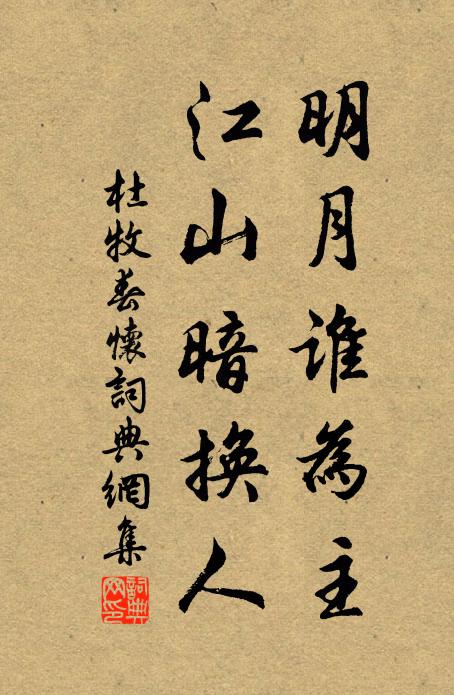 明月誰為主
江山暗換人
杜牧春懷詞典網集
詞典網印